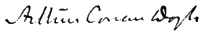 Arthur Conan Doyle